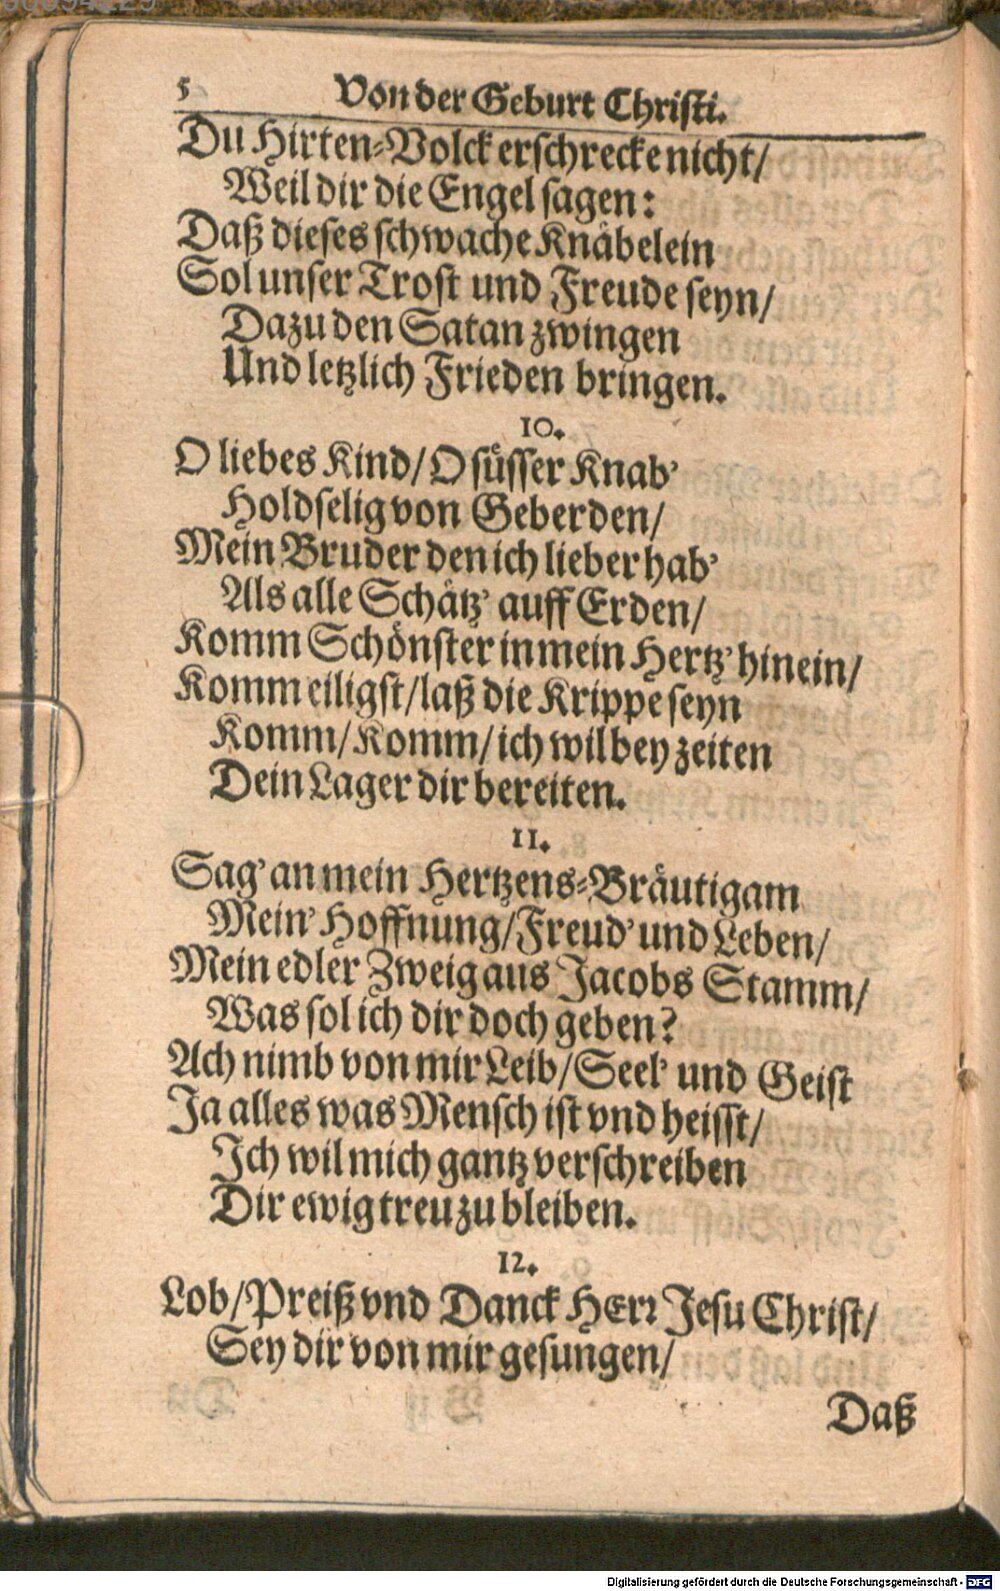 5 Von der Geburt Christi.
Du Hirten-Volck erschrecke nicht/
Weil dir die Engel sagen:
Daß dieses schwache Knäbelein
Sol unser Trost und Freude seyn/
Dazu den Satan zwingen
Und letzlich Frieden bringen.
10.
O liebes Kind/ O süsser Knab'
Holdselig von Geberden/
Mein Bruder den ich lieber hab'
Als alle Schätz' auff Erden/
Komm Schönster in mein Hertz' hinein/
Komm eiligst/ laß die Krippe seyn
Komm/ Komm/ ich wil bey zeiten
Dein Lager dir bereiten.
11.
Sag' an mein Hertzens-Bräutigam
Mein' Hoffnung/ Freud' und Leben/
Mein edler Zweig aus Jacobs Stamm/
Was sol ich dir doch geben?
Ach nimb von mir Leib/ Seel' und Geist
Ja alles was Mensch ist vnd heisst/
Ich wil mich gantz verschreiben
Dir ewig treu zu bleiben.
12.
Lob/ Preiß vnd Danck HErr Jesu Christ/
Sey dir von mir gesungen/
Daß
Digitalisierung gefördert durch die Deutsche Forschungsgemeinschaft - DFG